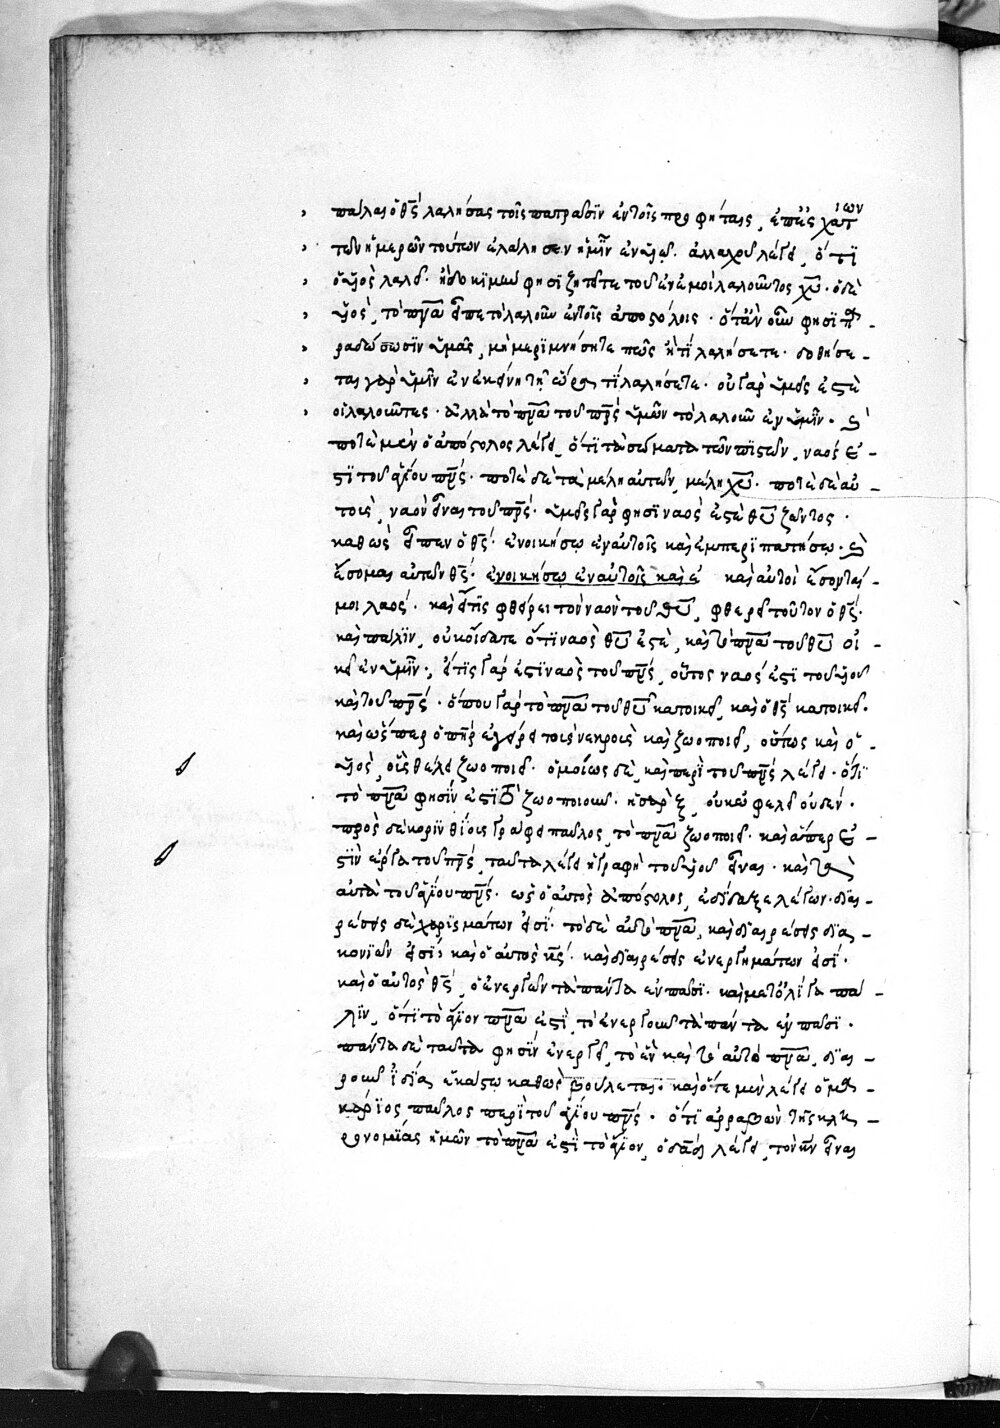 πάλαι ὁ θς λαλήσας τοῖς πατράσιν ἐν τοῖς προφήταις, ἐπ' ἐσχάτων
τῶν ἡμερῶν τούτων ἐλάλησεν ἡμῖν ἐν υἱῷ. ἀλλαχοῦ λέγει, ὅτι
ὁ υἱὸς λαλεῖ. ἢ δοκιμήν φησι ζητεῖτε τοῦ ἐν ἐμοὶ λαλοῦντος χυ. ὁ δὲ
υἱὸς, τὸ πνα εἶπε τὸ λαλοῦν ἐν τοῖς ἀποστόλοις. ὅταν οὖν φησι πα-
ραδώσωσιν ὑμᾶς, μὴ μεριμνήσητε πῶς ἢ τί λαλήσετε. δοθήσε-
ται γὰρ ὑμῖν ἐν ἐκείνῃ τῇ ὥρᾳ τί λαλήσετε. οὐ γὰρ ὑμεῖς ἐστὲ
οἱ λαλοῦντες. ἀλλὰ τὸ πνα τοῦ πρς ὑμῶν τὸ λαλοῦν ἐν ὑμῖν. καὶ
ποτὲ μὲν ὁ ἀπόστολος λέγει, ὅτι τὰ σώματα τῶν πιστῶν, ναός ἐ-
στι τοῦ ἁγίου πνς. ποτὲ δὲ τὰ μέλη αὐτῶν, μέλη χυ. ποτὲ δὲ αὐ-
τοὺς, ναὸν εἶναι τοῦ πρς. ὑμεῖς γάρ φησι ναὸς ἐστὲ θυ ζῶντος.
καθὼς εἶπεν ὁ θς. ἐνοικήσω ἐν αὐτοῖς καὶ ἐμπεριπατήσω. καὶ
ἔσομαι αὐτῶν θς. ἐνοικήσω ἐν αὐτοῖς καὶ ἐ καὶ αὐτοὶ ἔσονταί
μοι λαός. καὶ εἴ τις φθείρει τὸν ναὸν τοῦ θυ, φθερεῖ τοῦτον ὁ θς.
καὶ πάλιν, οὐκ οἴδατε ὅτι ναὸς θυ ἐστὲ, καὶ τὸ πνα τοῦ θυ οἰ-
κεῖ ἐν ὑμῖν. εἴ τις γάρ ἐστι ναὸς τοῦ πνς, οὗτος ναός ἐστι τοῦ υἱοῦ
καὶ τοῦ πρς. ὅπου γὰρ τὸ πνα τοῦ θυ κατοικεῖ, καὶ ὁ θς κατοικεῖ.
καὶ ὥσπερ ὁ πηρ ἐγείρει τοὺς νεκροὺς καὶ ζωοποιεῖ, οὕτως καὶ ὁ
υἱὸς, οὓς θέλει ζωοποιεῖ. ὁμοίως δὲ καὶ περὶ τοῦ πνς λέγει. ὅτι
τὸ πνα φησίν ἐστι τὸ ζωοποιοῦν. ἡ σὰρξ, οὐκ ὠφελεῖ οὐδέν.
πρὸς δὲ κορινθίοις γράφει παῦλος, τὸ πνα ζωοποιεῖ. καὶ ἅπερ ἐ-
στὶν ἔργα τοῦ πρς, ταῦτα λέγει ἡ γραφὴ τοῦ υἱοῦ εἶναι. καὶ τὰ
αὐτὰ τοῦ ἁγίου πνς. ὡς ὁ αὐτὸς ἀπόστολος, ἐδίδαξε λέγων. διαι-
ρέσεις δὲ χαρισμάτων εἰσί. τὸ δὲ αὐτὸ πνα, καὶ διαιρέσεις δια-
κονιῶν εἰσί, καὶ ὁ αὐτὸς κς. καὶ διαιρέσεις ἐνεργημάτων εἰσί.
καὶ ὁ αὐτὸς θς, ὁ ἐνεργῶν τὰ πάντα ἐν πᾶσι. καὶ μετ' ὀλίγα πά-
λιν, ὅτι τὸ ἅγιον πνα ἐστὶ, τὸ ἐνεργοῦν τὰ πάντα ἐν πᾶσι.
πάντα δὲ ταῦτα φησὶν ἐνεργεῖ, τὸ ἓν καὶ τὸ αὐτὸ πνα, διαι-
ροῦν ἰδίᾳ ἑκάστῳ καθὼς βούλεται. καὶ ὅτε μὲν λέγει ὁ μα-
κάριος παῦλος περὶ τοῦ ἁγίου πνς. ὅτι ἀρραβὼν τῆς κλη-
ρονομίας ἡμῶν τὸ πνα ἐστὶ τὸ ἅγιον, ὁ δαδ λέγει, τὸν κν εἶναι